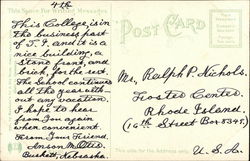 4th
This Space For Writing Messages
POST CARD
This College, is in
the business part
of T. F. and it is a
nice building, a
Stone front, and
brick for the rest.
The School continues
all the year with-
out any vacation.
I hope to hear
from you again
when convenient.
From Your Friend,
Anson M. Otis
Burkett, Nebraska.
Mr. Ralph P. Nichols.
Foster Center.
Rhode Island.
(16th Street Box 8345.)
U. S. A.